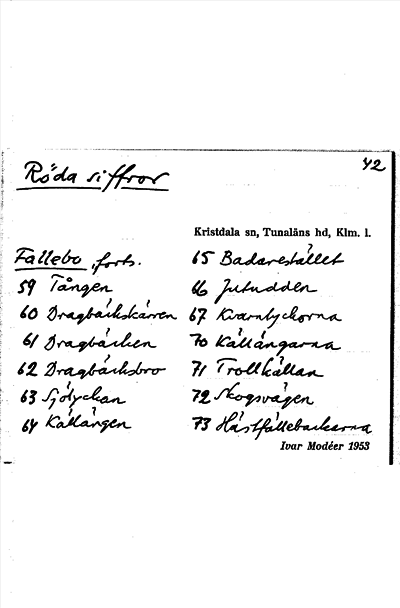 42
Röda siffror
Kristdala sn, Tunaläns hd, Klm. l.
Fallebo, forts.
59 Tången
60 Dragbäckskärren
61 Dragbäcken
62 Dragbäcksbro
63 Sjölyckan
64 Källängen
65 Badarestället
66 Jutudden
67 Kvarnlyckorna
70 Källängarna
71 Trollkällan
72 Skogsvägen
73 Hästfällebackarna
Ivar Modéer 1953